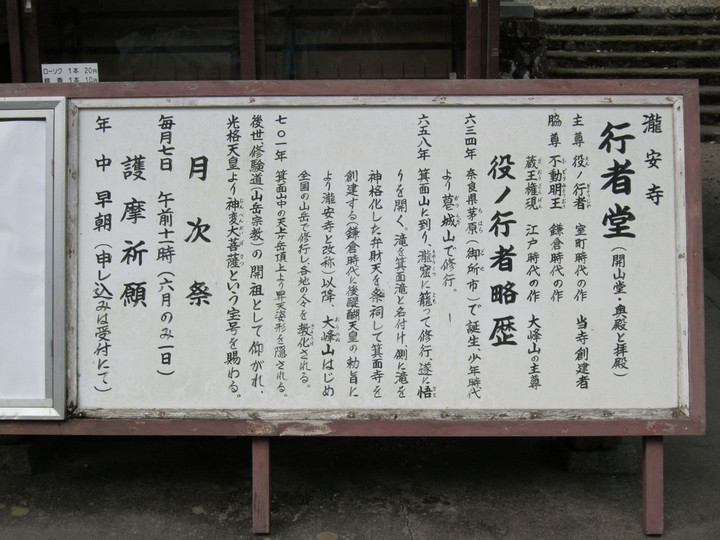 瀧安寺
行者堂(開山堂・奥殿と拝殿)
主尊 役ノ行者 室町時代の作 当寺創建者
脇尊 不動明王 鎌倉時代の作
蔵王権現 江戸時代の作 大峰山の主尊
役ノ行者略歴
六三四年 奈良県茅原(御所市)で誕生、少年時代
より葛城山で修行。
六五八年 箕面山に到り、瀧窟に籠って修行、遂に悟
りを開く。滝を箕面滝と名付け、側に滝を
神格化した弁財天を祭祠して箕面寺を
創建する(鎌倉時代に後醍醐天皇の勅旨に
より瀧安寺と改称)以降 大峰山はじめ
全国の山岳で修行し、各地の人々を教化される。
七〇一年 箕面山中の天上ヶ岳頂上より昇天姿形を隠される。
後世修験道(山岳宗教)の開祖として仰がれ、
光格天皇より神変大菩薩という宝号を賜わる。
月次祭
毎月七日 午前十一時(六月のみ一日)
護摩祈願
年中 早朝(申し込みは受付にて)
ローソク 1本 20円
線香 1本 10円